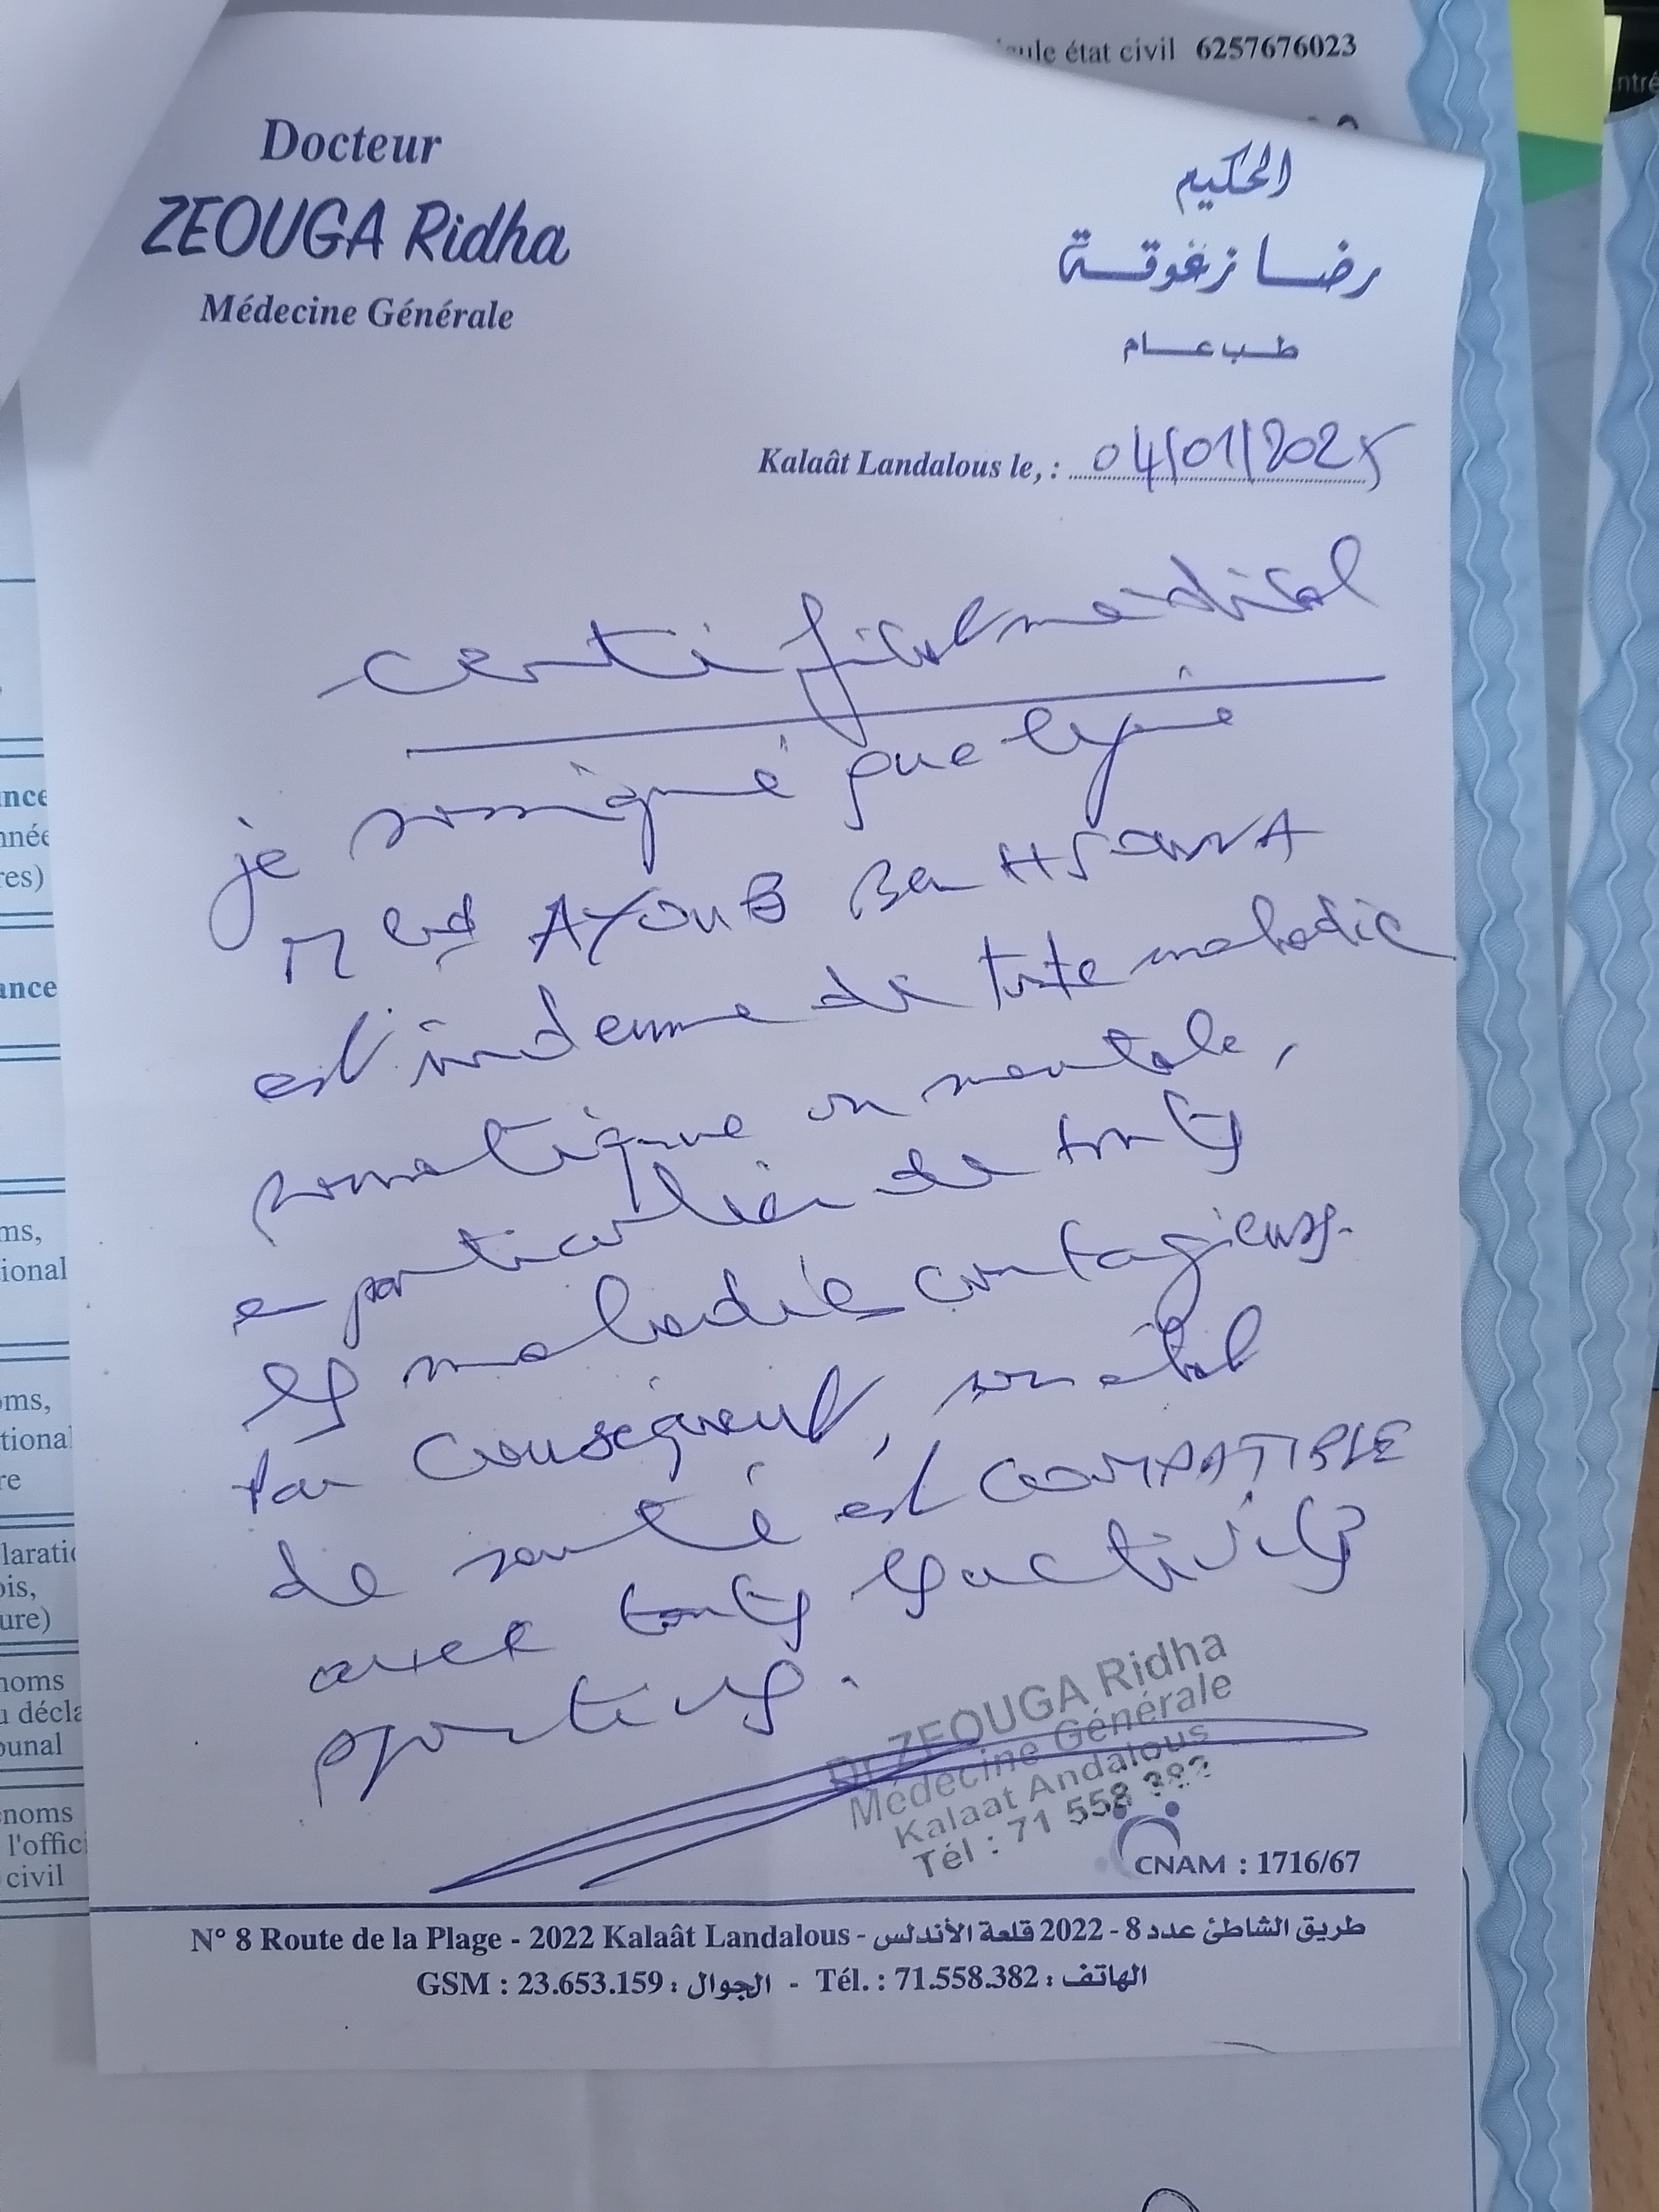 ule état civil 6257676023
Docteur
ZEOUGA Ridha
Médecine Générale
الحكيم
رضا زغوقة
طب عام
Kalaât Landalous le, : 04/01/2025
certificat médical
je soussigné que le jeune
Med AYOUB Ben HSOUNA
est indemne de toute maladie
somatique ou mentale,
en particulier de toutes
les maladies contagieuses.
Par conséquent, son état
de santé est COMPATIBLE
avec toutes les activités
sportives.
Dr ZEOUGA Ridha
Médecine Générale
Kalaat Andalous
Tél : 71 558 382
CNAM : 1716/67
N° 8 Route de la Plage - 2022 Kalaât Landalous - طريق الشاطئ عدد 8 - 2022 قلعة الأندلس
GSM : 23.653.159 : الجوال - Tél. : 71.558.382 : الهاتف
nce
nnée
res)
ance
ms,
ional
oms,
tional
re
laratio
ois,
ure)
noms
u décla
bunal
noms
l'offic
civil
ntré